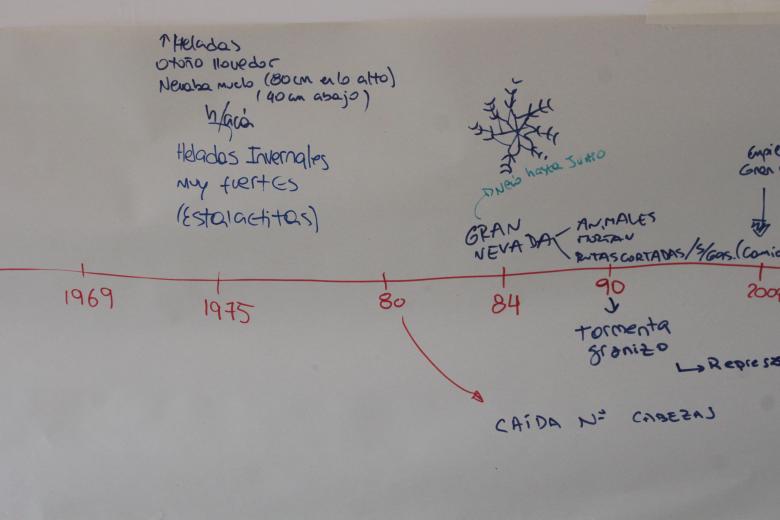 ↑Heladas
Otoño llovedor
Nevaba mucho (80cm en lo alto)
(40cm abajo)
h/acá
Heladas Invernales
muy fuertes
(Estalactitas)
Nevó hasta Junio
GRAN
NEVADA
ANIMALES
MORÍAN
RUTAS CORTADAS/S/Gas.(Camio
Gran
1969
1975
80
84
90
200
Tormenta
granizo
Represa
CAÍDA Nº CABEZAS